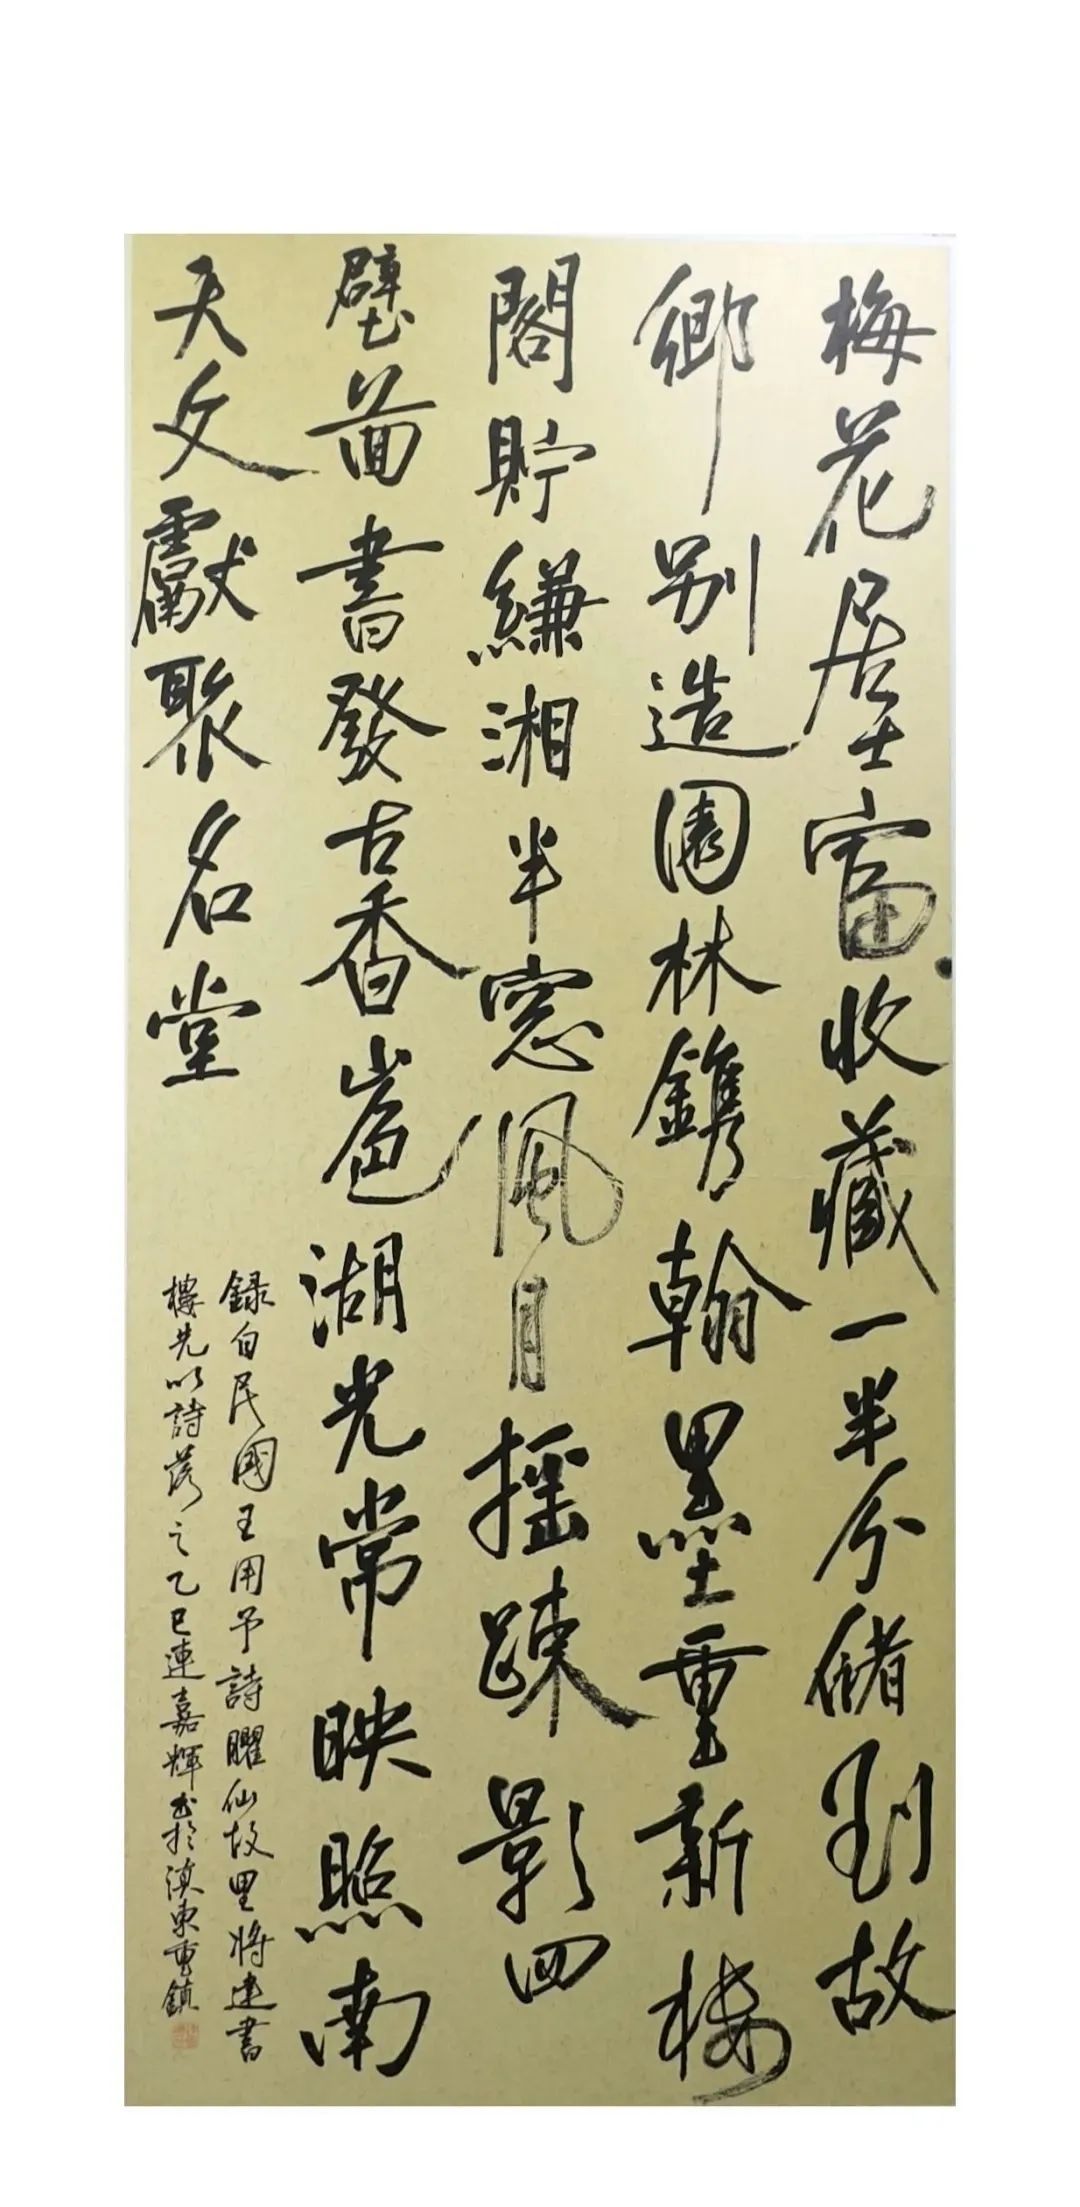 梅花居富收藏一半分儲到故
鄉别造園林鐫翰墨重新樓
閣貯縑湘半窓風月摇踈影四
壁啚書發古香嵐湖光常映照南
天文獻聚名堂
録自民國王用予詩臞仙故里將建書
樓先以詩落之乙巳連嘉輝書於滇東重鎮